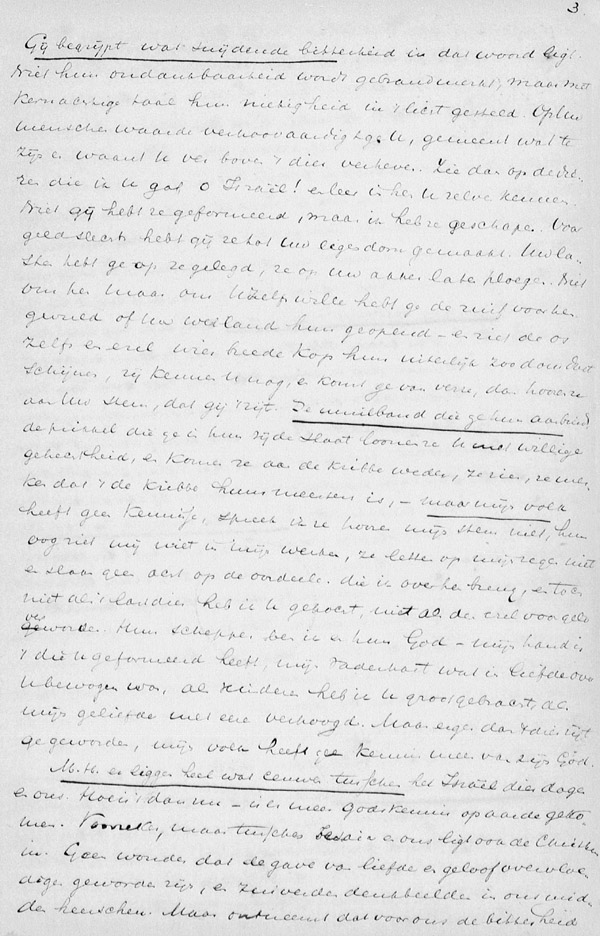 3.
Gij begrijpt wat snijdende bitterheid in dat woord ligt.
Niet hun ondankbaarheid wordt gebrandmerkt, maar met
kernachtige taal hun nietigheid in 't licht gesteld. Op Uw
menschenwaarde verhoovaardigt ge U, gemeent wat te
zijn en waant U ver boven 't dier verheven. Zie dan op de
die ik u gaf O Israël! en leer in hen U zelve kennen.
Niet gij hebt ze geformeerd, maar ik heb ze geschapen. Voor
geld slechts hebt gij ze tot Uw eigendom gemaakt. Uw la-
sten hebt ge op ze gelegd, ze op Uw akker laten ploegen. Niet
om hen maar om Uzelfs wille hebt ge de ruif voor hen
gevuld of Uw weiland hun geopend - en ziet de os
zelfs en ezel wier breede kop hun uiterlijk zoo dom doet
schijnen, zij kennen U nog, en komt ge van verre, dan hooren ze
aan Uw stem, dat gij 't zijt. De muilband die ge hun aanbindt
de prikkel die ge in hun zijde slaat loonen ze U met willige
gehechtheid, en komen ze aan de kribbe weder, ze zien, ze mer-
ken dat 't de kribbe huns meesters is, - maar mijn volk
heeft geen kennisse, spreek ik ze hooren mijn stem niet, hun
oog ziet mij niet in mijn werken, ze letten op mijn zegen niet
en slaan geen acht op de oordeelen die ik over hen breng, en toch
niet als 't lastdier heb ik U gekocht, niet als den ezel voor geld
verworven. Hun schepper ben ik en hun God - mijn hand is
't die U geformeerd heeft, mijn Vaderhart was in liefde over
U bewogen, als kinderen heb ik U grootgebracht, als
mijn geliefde met eere verhoogd. Maar erger dan 't dier zijt
ge geworden, mijn volk heeft geen kennis meer van zijn God.
M.H. er liggen heel wat eeuwen tusschen het Israël dier dagen
en ons. Hoe is 't dan nu - is er meer Godskennis op aarde geko-
men. Voorzeker, maar tusschen Jesaia en ons ligt ook de Christus
in. Geen wonder dat de gave van liefde en geloof overvloe-
diger geworden zijn, en zuiverder denkbeelden in ons mid-
den heerschen. Maar ontneemt dat voor ons de bitterheid